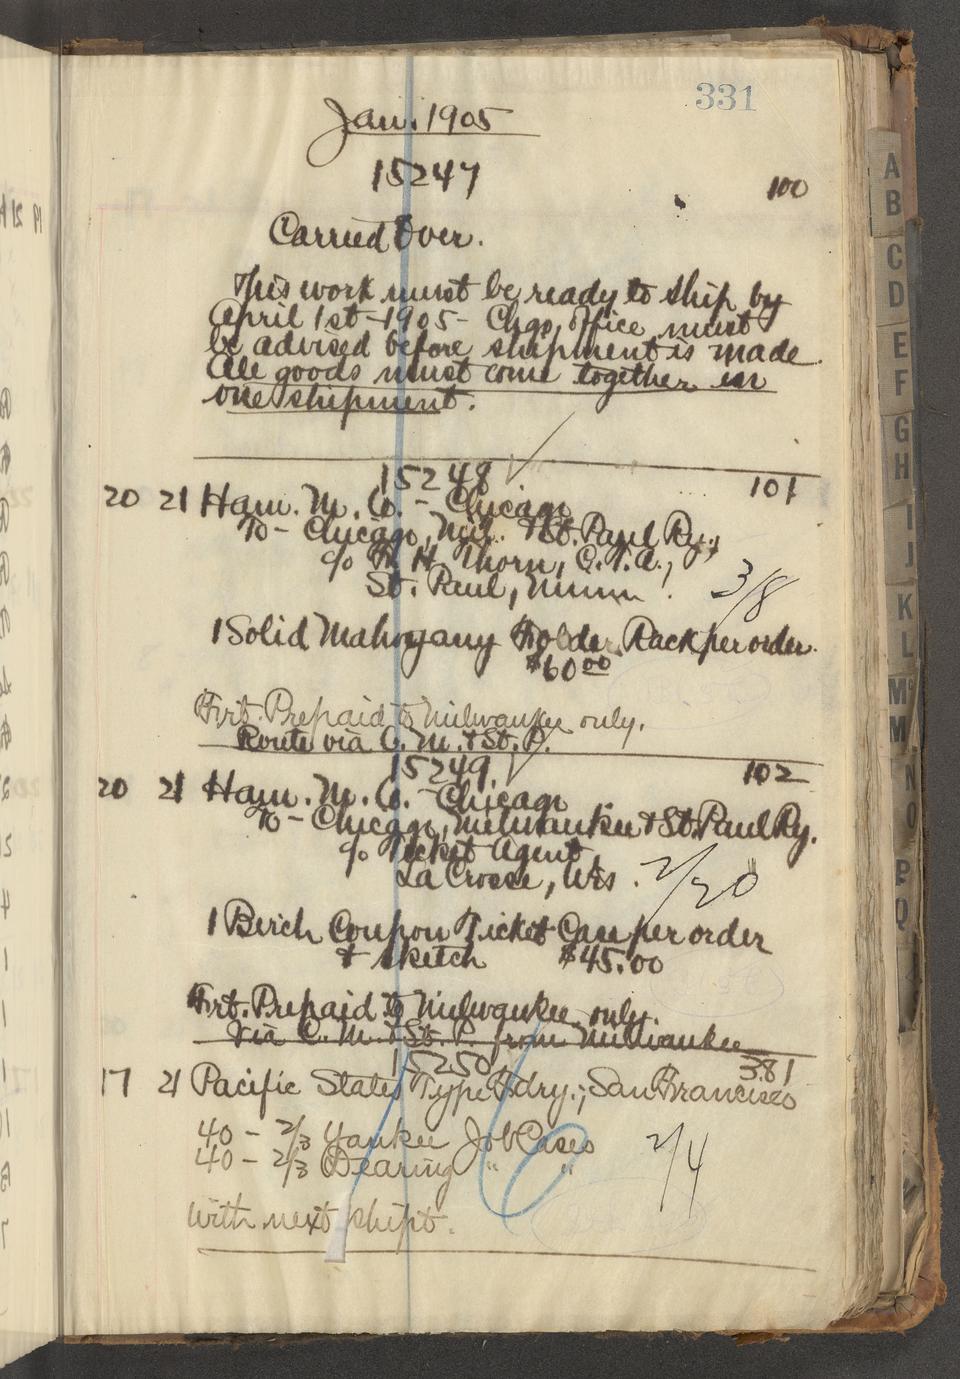 331
Jan. 1905
15247
100
Carried Over.
This work must be ready to ship by
April 1st - 1905 - Chgo. Office must
be advised before shipment is made.
All goods must come together in
one shipment.
15248
101
20 21 Ham. M. Co. - Chicago
To - Chicago, Mil. & St. Paul Ry.,
c/o H. Thorn, C.T.A.,
St. Paul, Minn.
3/8
1 Solid Mahogany Folder Rack per order.
$60.00
Frt. Prepaid to Milwaukee only.
Route via C. M. & St. P.
15249.
102
20 21 Ham. M. Co. - Chicago
To - Chicago, Milwaukee & St. Paul Ry.
c/o Ticket Agent,
La Crosse, Wis.
2/20
1 Birch Coupon Ticket Case per order
& sketch $45.00
Frt. Prepaid to Milwaukee only.
Via C. M. & St. P. from Milwaukee
15250
381
17 21 Pacific States Type Fdry.; San Francisco
40 - 2/3 Yankee Job Cases
40 - 2/3 Dearing " "
2/4
With next shipt.
A
B
C
D
E
F
G
H
I
J
K
L
Mc
M
N
O
P
Q